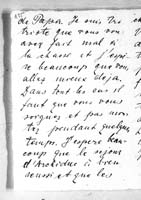 de Papa. Je suis très
triste que vous vous
avez fait mal à
la chasse et j'espè
re beaucoup que vous
allez mieux déjà.
Dans tout les cas il
faut que vous vous
soignez et pas mon
tez pendant quelque
temps. J'espère beau
coup que le séjour
d'Arcachon a bien
réussi et que les